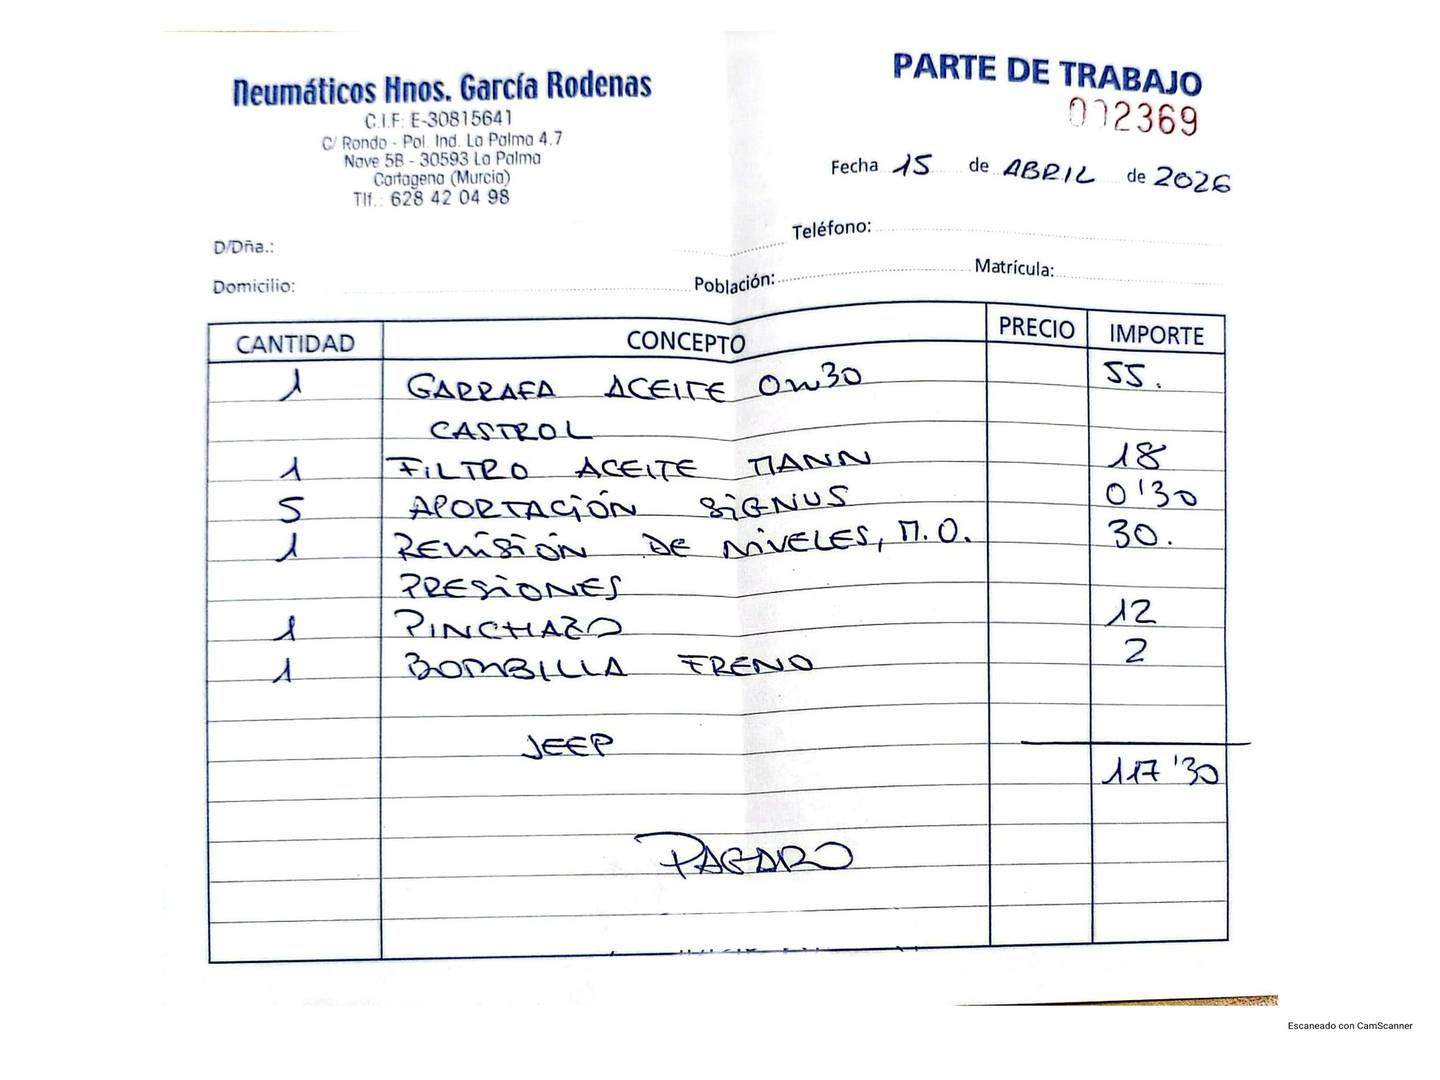 Neumáticos Hnos. García Rodenas
C.I.F: E-30815641
C/ Rondo - Pol. Ind. La Palma 4.7
Nave 5B - 30593 La Palma
Cartagena (Murcia)
Tlf.: 628 42 04 98
PARTE DE TRABAJO
002369
Fecha 15 de ABRIL de 2026
D/Dña.: Teléfono:
Domicilio: Población: Matrícula:
CANTIDAD CONCEPTO PRECIO IMPORTE
1 GARRAFA ACEITE 0w30 55.
CASTROL
1 FILTRO ACEITE MANN 18
5 APORTACIÓN SIGNUS 0'30
1 REVISIÓN DE NIVELES, M.O. 30.
PRESIONES
1 PINCHAZO 12
1 BOMBILLA FRENO 2
JEEP
117'30
PAGADO
Escaneado con CamScanner